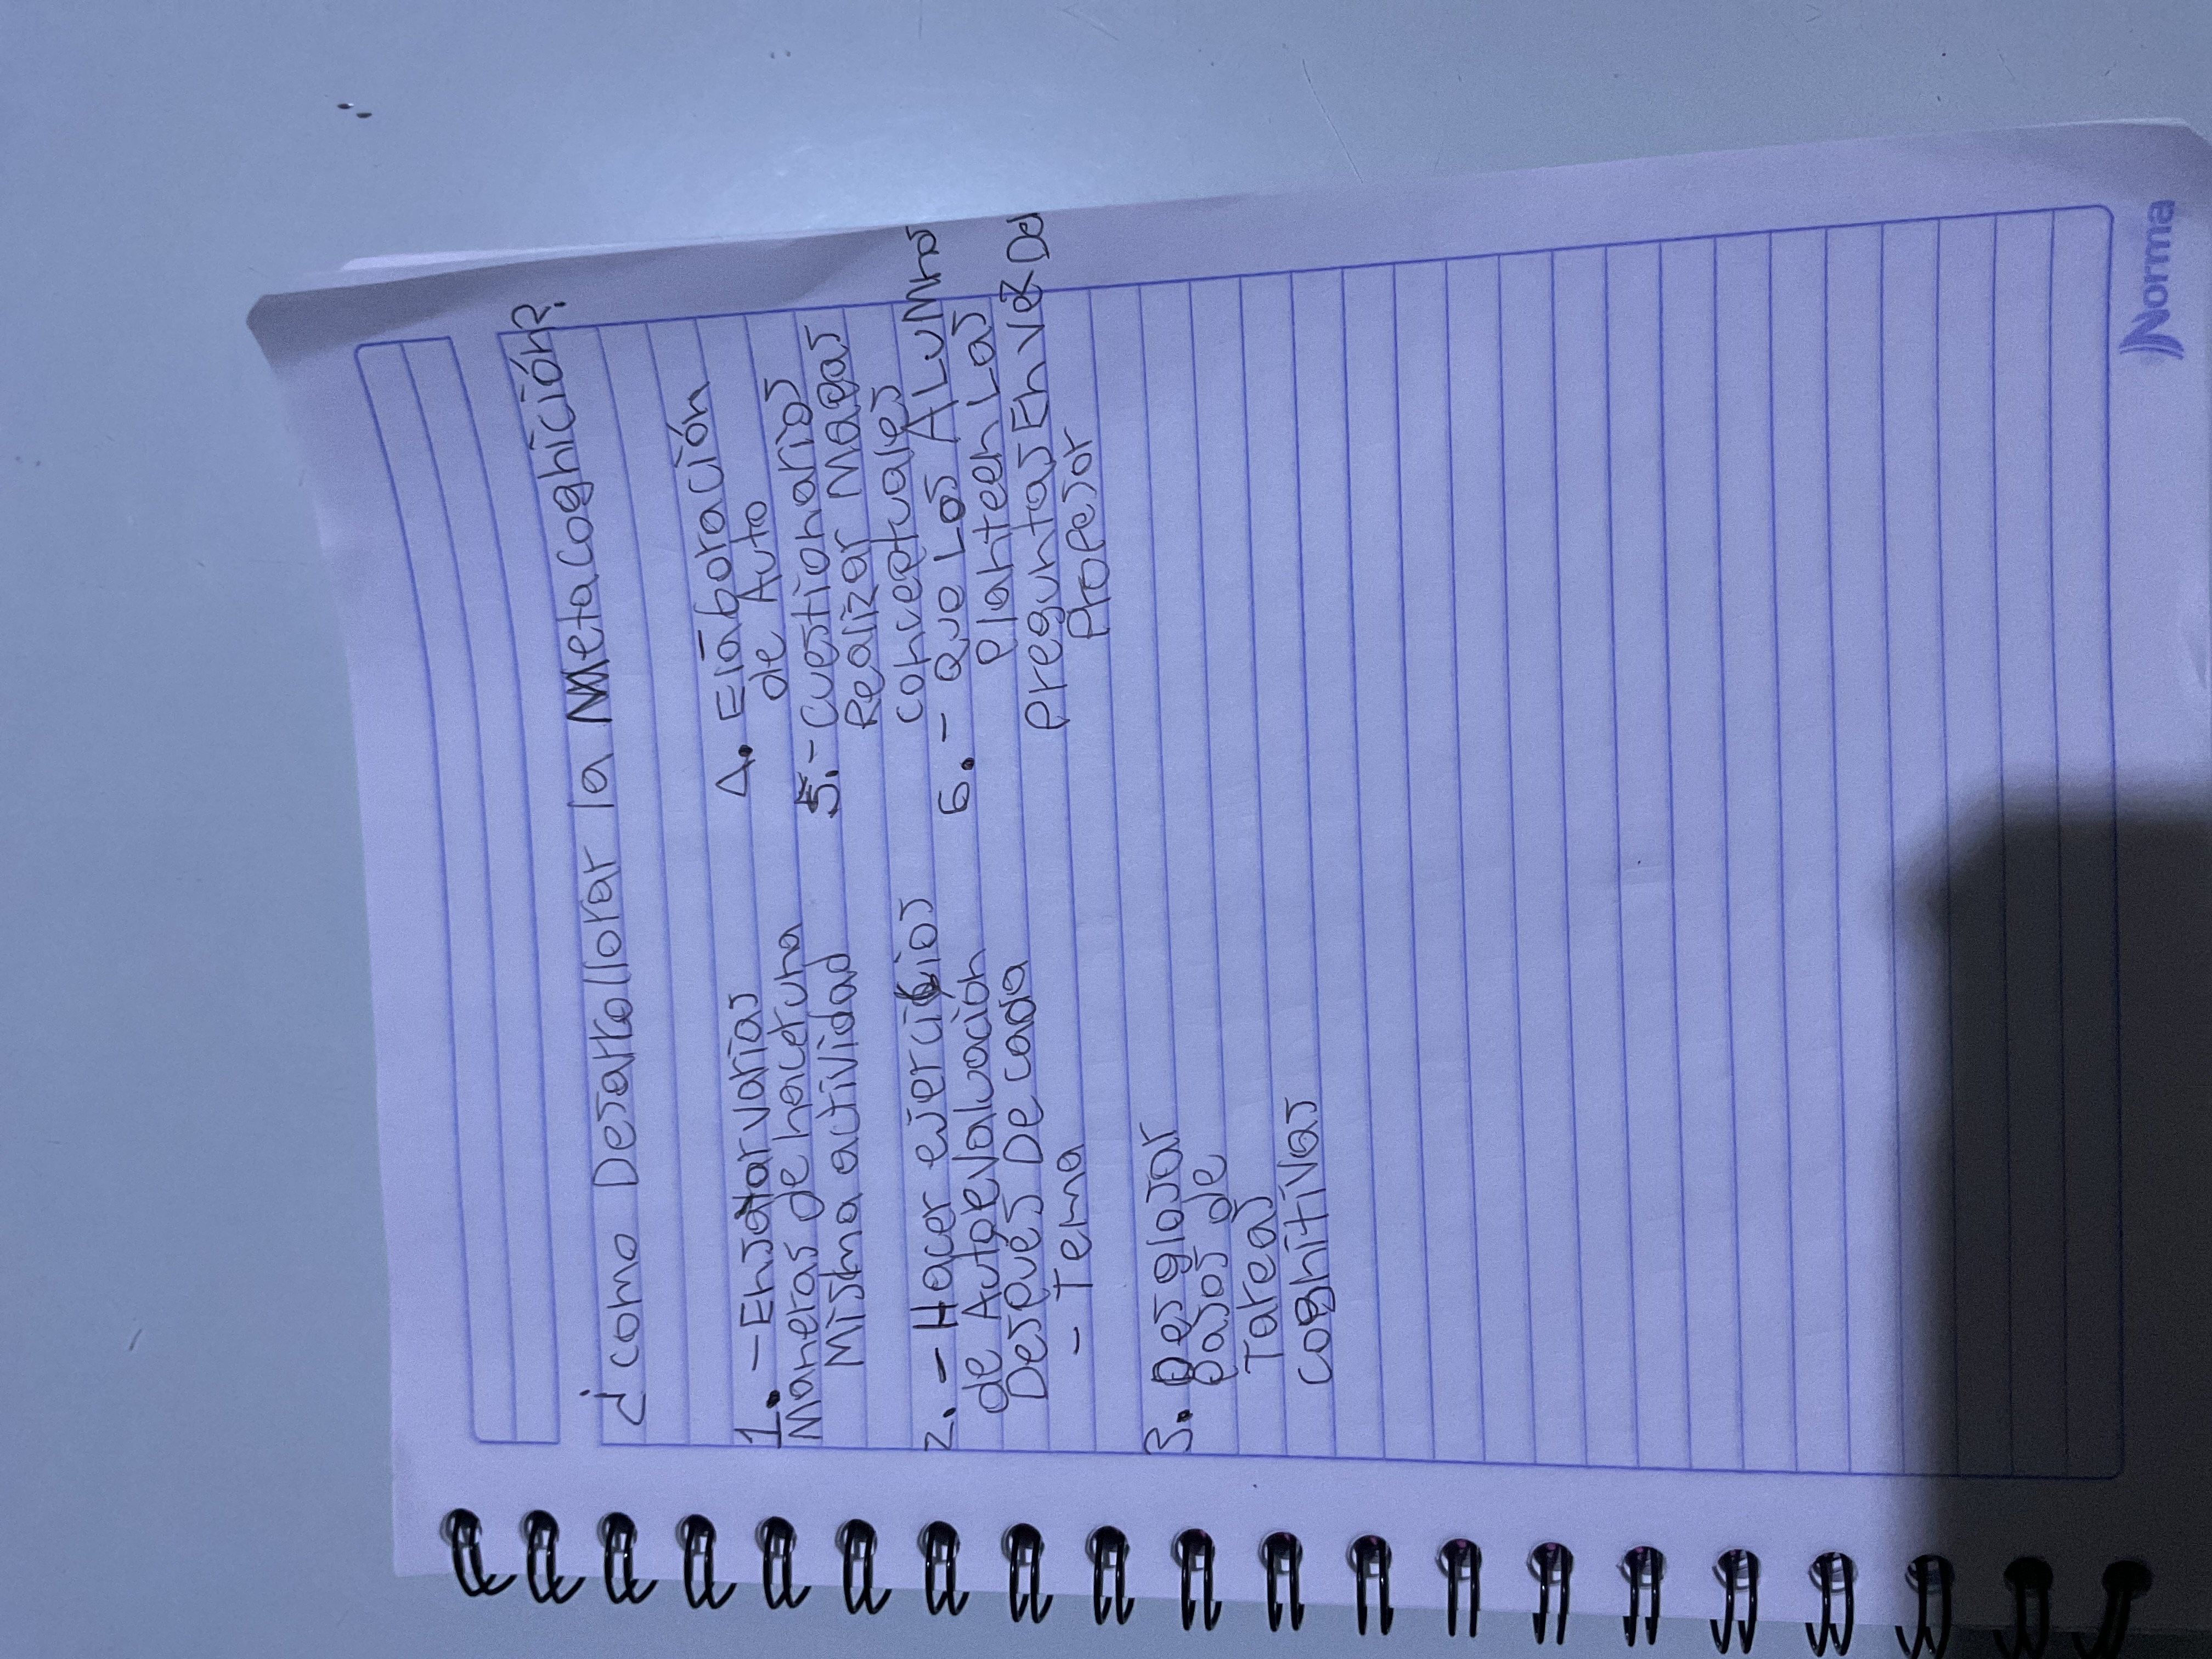 ¿como Desarrollorar la Metacoghición?
1.-Ensatar varias
Maneras de hacer una
Misma actividad
2.-Hacer ejercicios
de Autoevaluación
Después De cada
- Tema
3. Desglosar
pasos de
Tareas
cognitivas
4. Elaboración
de Auto
5.-Cuestionarios
Realizar Mapas
conceptuales
6.- Que Los ALuMnos
Planteen Las
preguntas En vez Del
Profesor
Norma